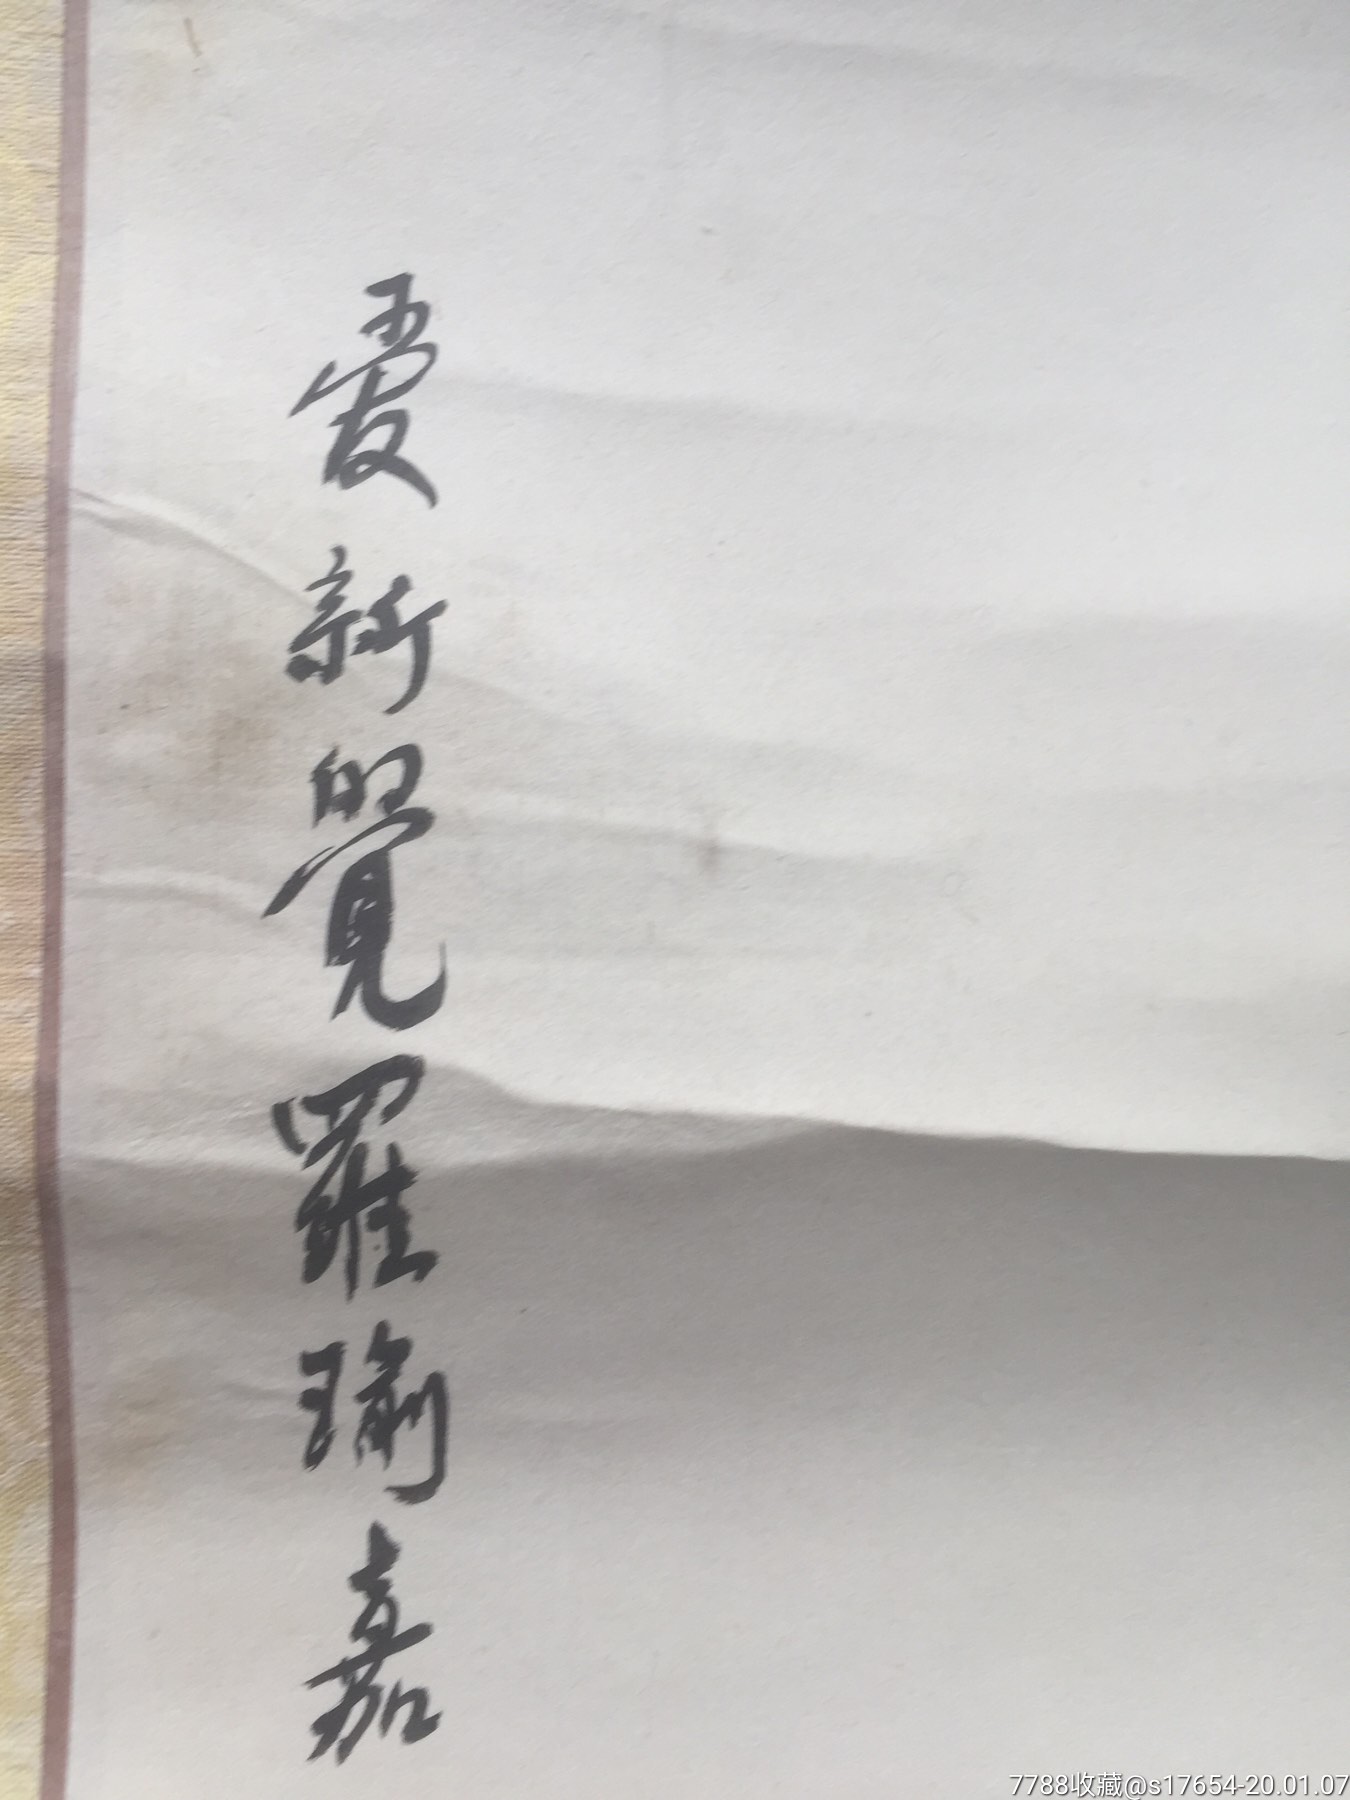 愛新覺羅瑜嘉
7788收藏@s17654-20.01.07